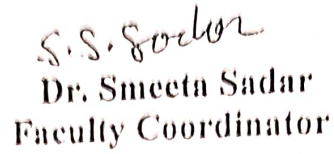 S. S. Sadar
Dr. Smeeta Sadar
Faculty Coordinator